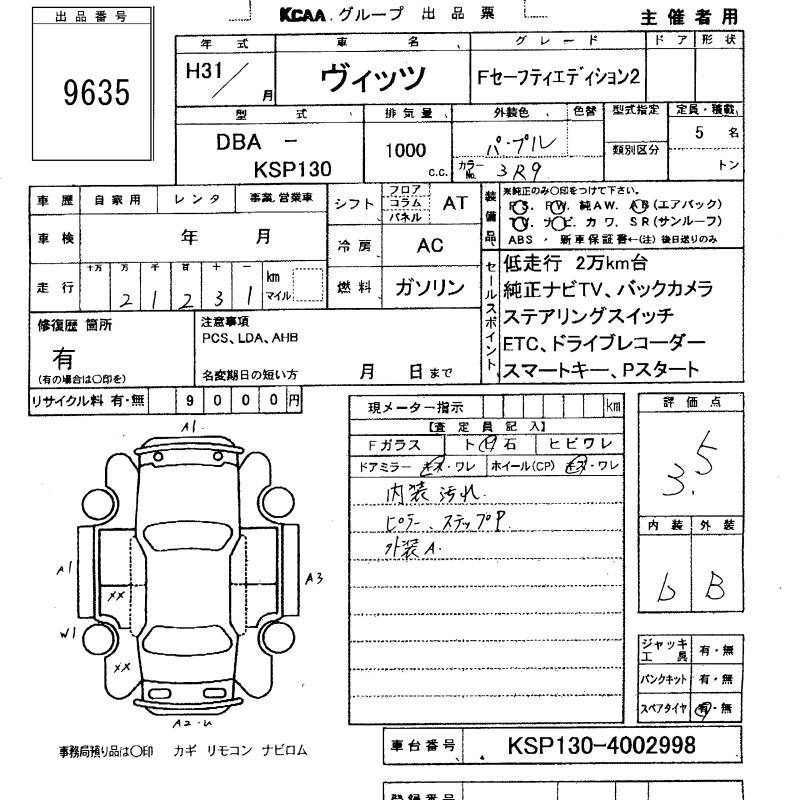 出品番号
9635
KCAA グループ 出品票
主催者用
年式 車名 グレード ドア 形状
H31/ 月 ヴィッツ Fセーフティエディション2
型式 排気量 外装色 色替 型式指定 定員・積載
DBA - パープル 5 名
KSP130 1000 c.c. カラーNo. 3R9 類別区分 トン
車歴 自家用 レンタ 事業.営業車 シフト フロア コラム パネル AT
車検 年 月 冷房 AC
走行 十万 万 千 百 十 一 km マイル 燃料 ガソリン
2 1 2 3 1
装備品
※純正のみ〇印をつけて下さい。
PS. PW. 純AW. AB(エアバック)
TV. ナビ. カワ. SR(サンルーフ)
ABS . 新車保証書←(注) 後日送りのみ
セールスポイント
低走行 2万km台
純正ナビTV、バックカメラ
ステアリングスイッチ
ETC、ドライブレコーダー
スマートキー、Pスタート
修復歴 箇所
有
(有の場合は〇印を)
注意事項
PCS、LDA、AHB
名変期日の短い方 月 日まで
リサイクル料 有・無 9 0 0 0 円
現メーター指示 km
【査定員記入】
Fガラス ト 石 ヒビワレ
ドアミラー キズ・ワレ ホイール(CP) キズ・ワレ
内装 汚れ
ピラー、ステップP
外装A.
評価点
3.5
内装 外装
b B
ジャッキ工具 有・無
パンクキット 有・無
スペアタイヤ 有・無
A1
A1
A3
XX
W1
XX
A2・U
事務局預り品は〇印 カギ リモコン ナビロム
車台番号 KSP130-4002998
登録番号